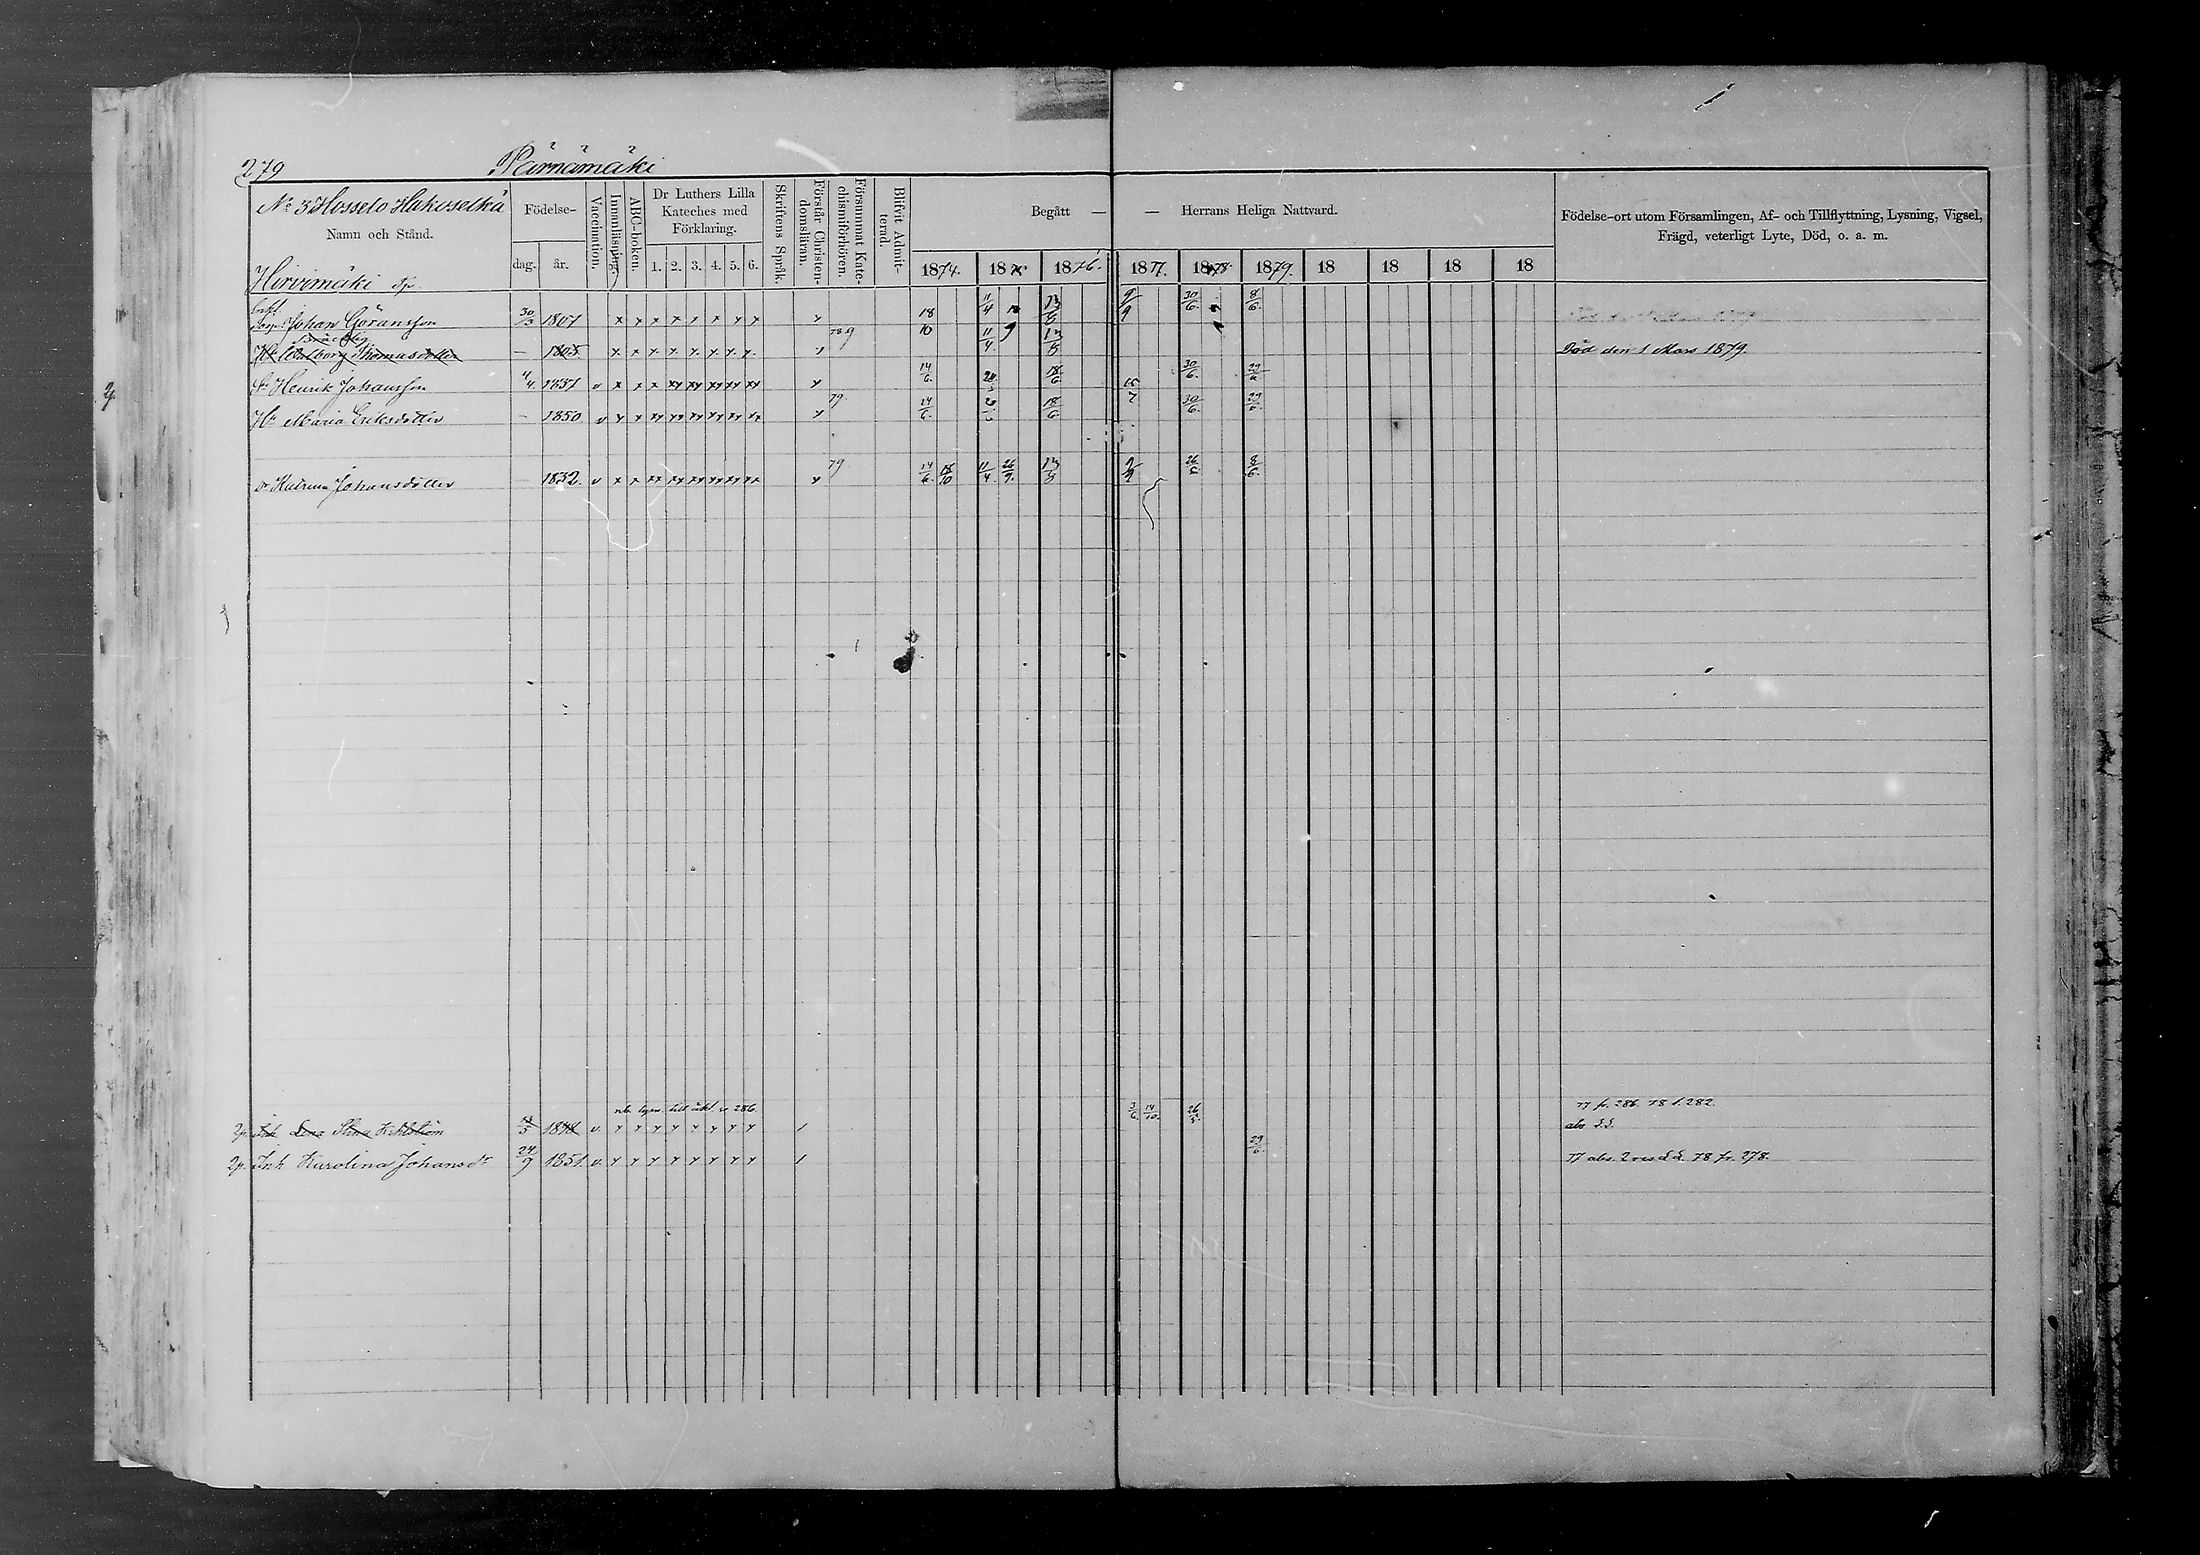 279 Pärnämäki
No 3 Hosselo Hakoselkä
Namn och Stånd.
Hirvimäki
Födelse-
dag. år.
Vaccination.
Innanläsning.
ABC-boken.
Dr Luthers Lilla
Kateches med
Förklaring.
1. 2. 3. 4. 5. 6.
Skriftens Språk.
Förstår Christen-
domsläran.
Försummat Kate-
chismiförhören.
Blifvit Admit-
terad.
Begått — — Herrans Heliga Nattvard.
1874. 187 1876. 1877. 1878 1879. 18 18 18 18
Födelse-ort utom Församlingen, Af- och Tillflyttning, Lysning, Vigsel,
Frägd, veterligt Lyte, Död, o. a. m.
Johan Göransson 30/3 1807 x x x x x x x x 18 11/4 13/5 9/9 30/6. 8/6.
Hu Walborg Thomasdotter — 1805 x x x x x x x x 78 9 10 11/4 13/5 Död den 1 Mars 1879.
Sn Henrik Johansson 4/4 1837 v x x x xx xx xx xx xx 14/6. 18/6 30/6. 29/6
Hu Maria Eriksdotter — 1850 v x x xx xx xx xx xx xx 79 14/6. 18/6. 30/6. 29/6.
Dr Katrina Johansdotter — 1832. v x x xx xx xx xx xx xx 79 14/6. 18/10 11/4 26/9. 13/5 9/9 26/5 8/6.
286.
2p. Inh Lena Stina Ekström 5 1848 v. 3/6. 14/10. 26/5. 77 fr. 286. 78 t. 282.
abs. d.d.
2p. Inh Karolina Johansdr 24/9 1851. v. 29/6. 77 abs. 2 res d.d. 78 fr. 278.